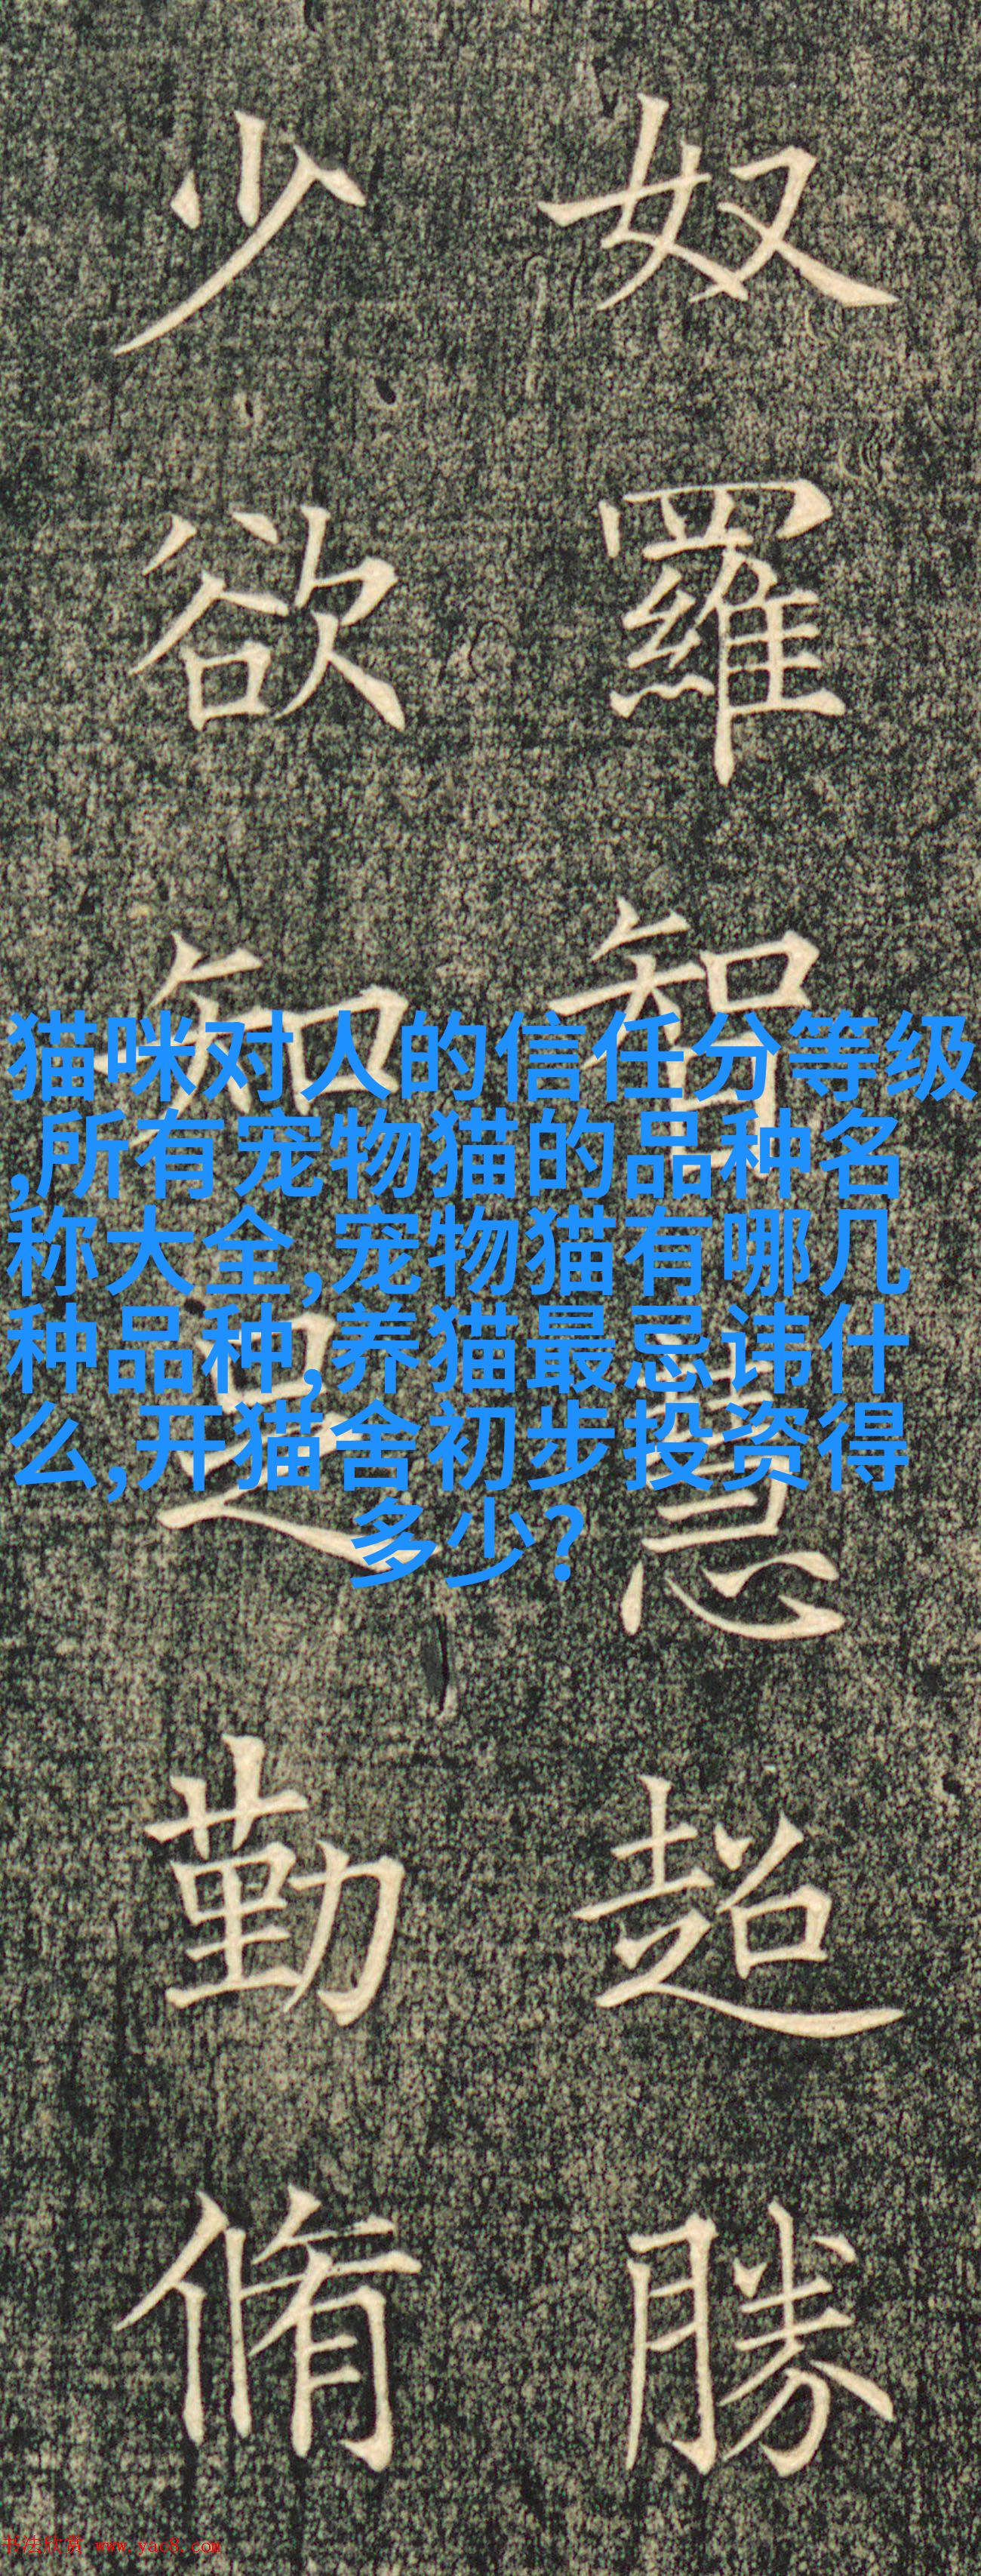 奴羅智慧超勝
少欲知足勤脩
猫咪对人的信任分等级
,所有宠物猫的品种名
称大全,宠物猫有哪几
种品种,养猫最忌讳什
么,开猫舍初步投资得
多少?
书法欣赏 www.yac8.com